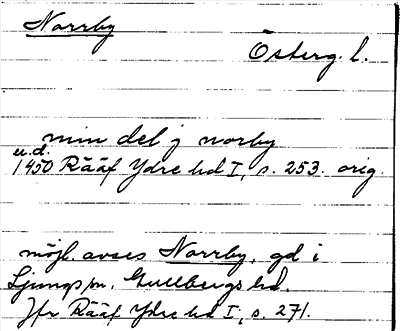 Norrby
Österg. l.
min del j norby
u.d.
1450 Rääf Ydre hd I, s. 253. orig.
möjl. avses Norrby, gd i
Ljungs sn, Gullbergs hd.
Jfr Rääf Ydre hd I, s. 271.